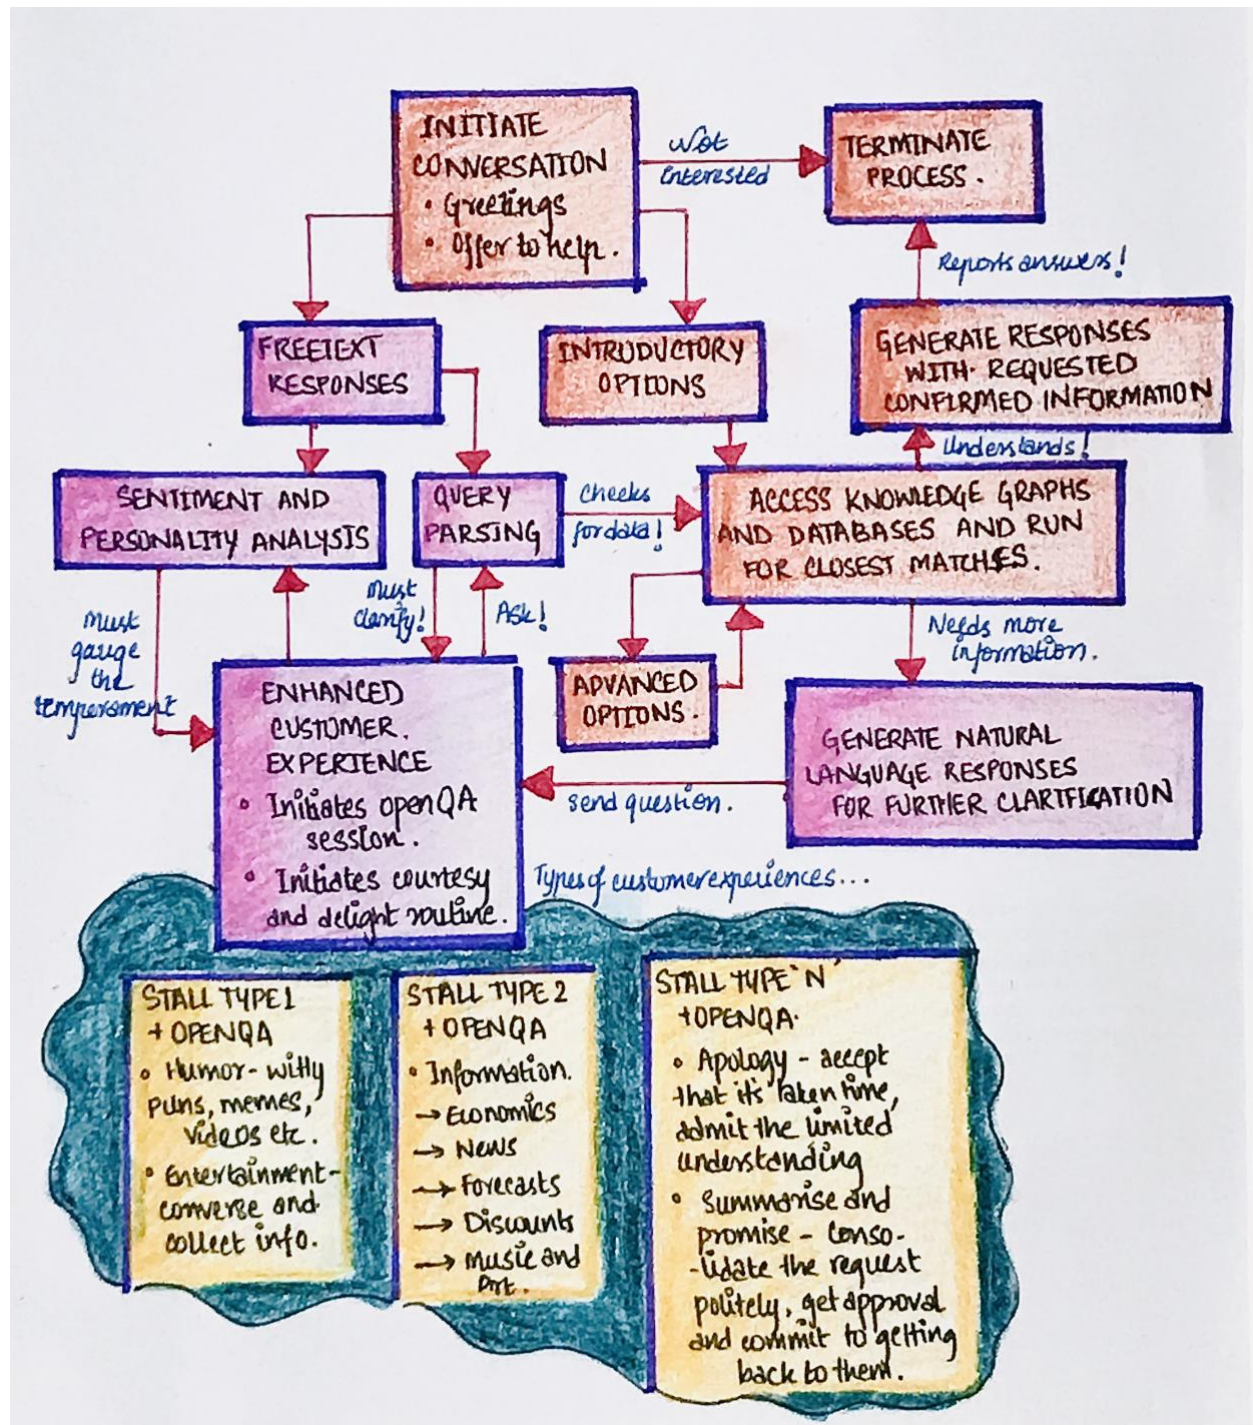 INITIATE
CONVERSATION
• Greetings
• Offer to help.
Not
interested
TERMINATE
PROCESS.
Reports answers!
FREETEXT
RESPONSES
INTRODUCTORY
OPTIONS
GENERATE RESPONSES
WITH REQUESTED
CONFIRMED INFORMATION
Understands!
SENTIMENT AND
PERSONALITY ANALYSIS
QUERY
PARSING
Checks
for data!
ACCESS KNOWLEDGE GRAPHS
AND DATABASES AND RUN
FOR CLOSEST MATCHES.
Must
gauge
the
temperament
Must
clarify!
Ask!
Needs more
information.
ENHANCED
CUSTOMER.
EXPERIENCE
• Initiates openQA
session.
• Initiates courtesy
and delight routine.
ADVANCED
OPTIONS.
GENERATE NATURAL
LANGUAGE RESPONSES
FOR FURTHER CLARIFICATION
Send question.
Types of customer experiences...
STALL TYPE 1
+ OPENQA
• Humor - witty
puns, memes,
videos etc.
• Entertainment-
converse and
collect info.
STALL TYPE 2
+ OPENQA
• Information.
→ Economics
→ News
→ Forecasts
→ Discounts
→ Music and
Art.
STALL TYPE 'N'
+OPENQA.
• Apology - accept
that it's taken time,
admit the limited
understanding
• Summarise and
promise - conso-
-lidate the request
politely, get approval
and commit to getting
back to them.